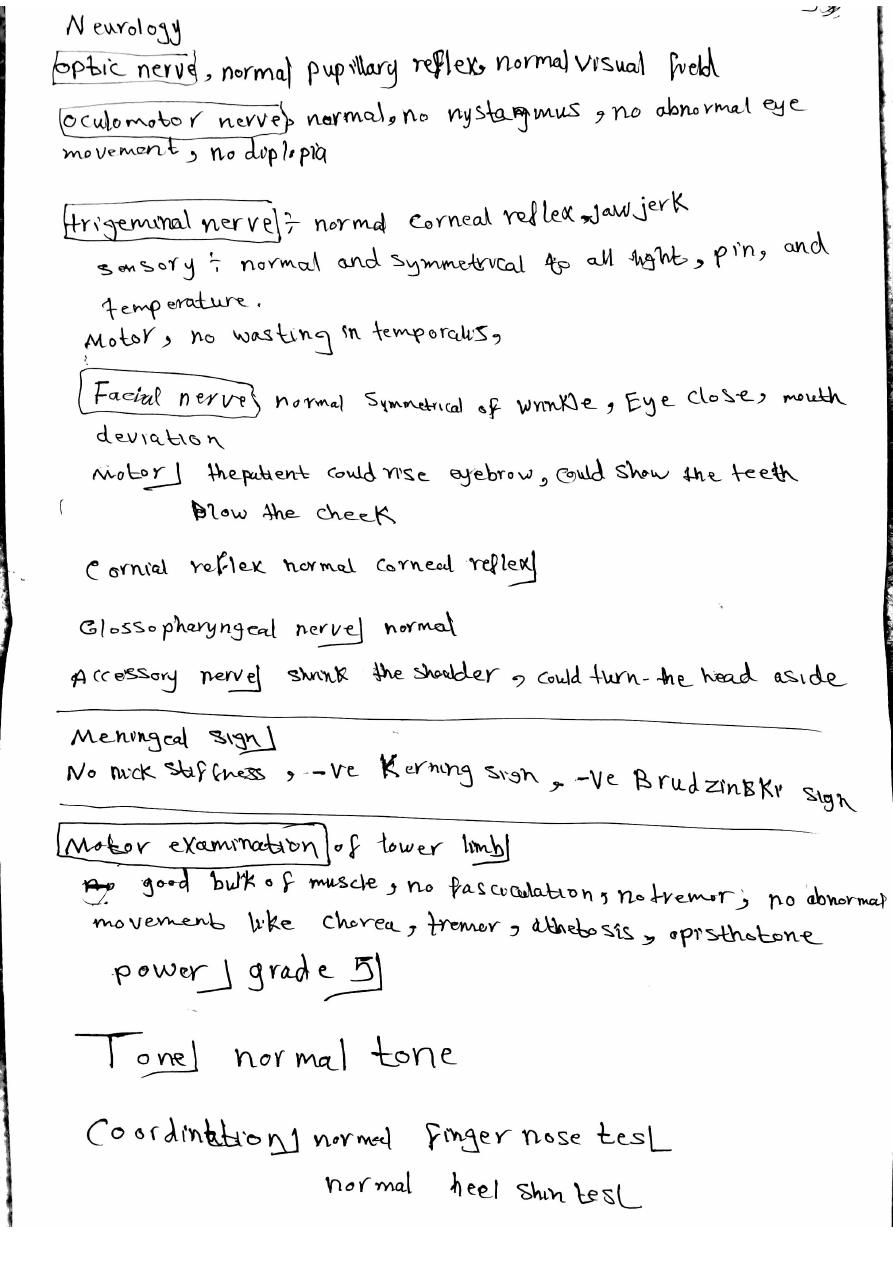 Neurology
optic nerve, normal pupillary reflex, normal visual field
oculomotor nerve, normal, no nystagmus, no abnormal eye
movement, no diplopia
trigeminal nerve ÷ normal corneal reflex, Jaw jerk
sensory ÷ normal and symmetrical to all light, pin, and
temperature.
Motor, no wasting in temporalis,
Facial nerve normal Symmetrical of wrinkle, Eye close, mouth
deviation
Motor] the patient could rise eyebrow, could show the teeth
blow the cheek
Cornial reflex normal corneal reflex]
Glossopharyngeal nerve] normal
Accessory nerve] shrink the shoulder, could turn-the head aside
Meningeal sign]
No nick stiffness, -ve Kerning sign, -ve Brudzinski sign
Motor examination of lower limb]
good bulk of muscle, no fasciculation, no tremor, no abnormal
movement like chorea, tremor, athetosis, opisthotone
power] grade 5]
Tone] normal tone
Coordination] normal finger nose test
normal heel shin test